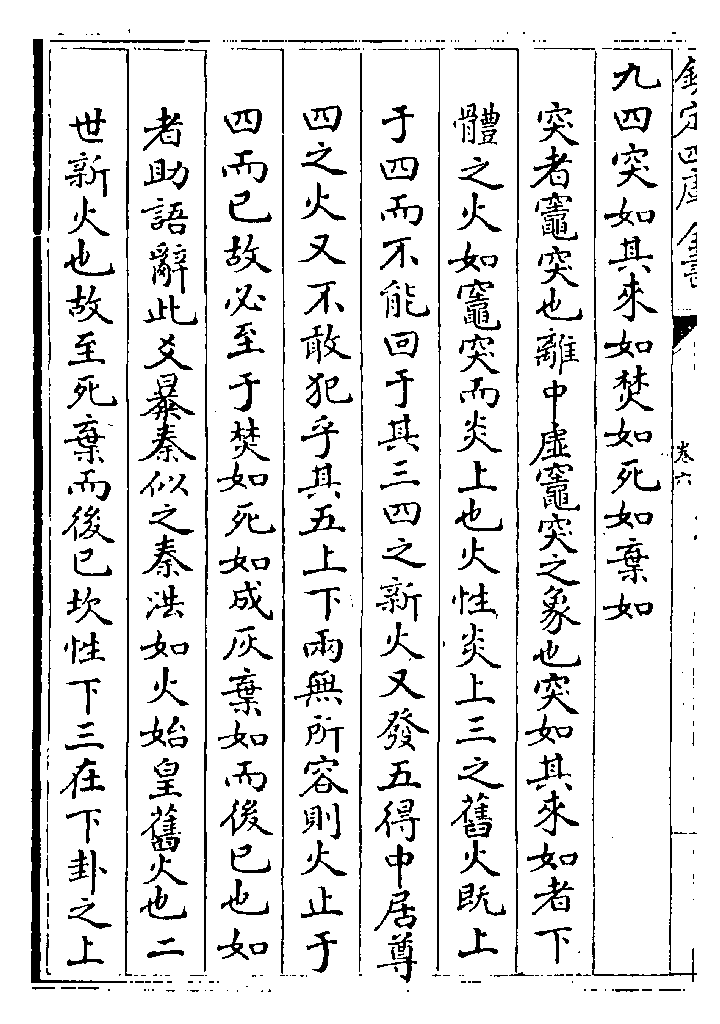 欽定四庫全書
卷六
九四突如其來如焚如死如棄如
突者竈突也離中虛竈突之象也突如其來如者下
體之火如竈突而炎上也火性炎上三之舊火既上
于四而不能回于其三四之新火又發五得中居尊
四之火又不敢犯乎其五上下兩無所容則火止于
四而已故必至于焚如死如成灰棄如而後已也如
者助語辭此爻暴秦似之秦法如火始皇舊火也二
世新火也故至死棄而後已坎性下三在下卦之上